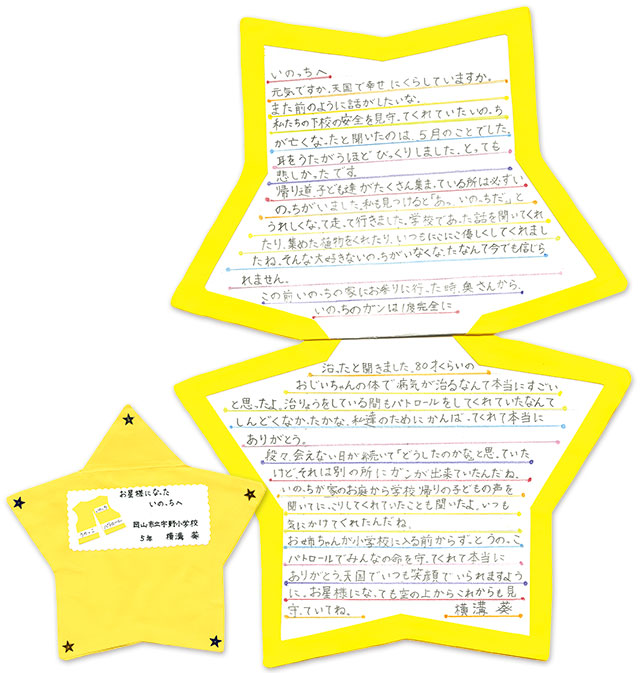 いのっちへ
元気ですか。天国で幸せにくらしていますか。
また前のように話がしたいな。
私たちの下校の安全を見守ってくれていたいのっち
が亡くなったと聞いたのは、5月のことでした。
耳をうたがうほどびっくりしました。とっても
悲しかったです。
帰り道、子ども達がたくさん集まっている所は必ずい
のっちがいました。私も見つけると「あっ、いのっちだ。」と
うれしくなって走って行きました。学校であった話を聞いてくれ
たり、集めた植物をくれたり、いつもにこにこ優しくしてくれまし
たね。そんな大好きないのっちがいなくなったなんて今でも信じら
れません。
この前いのっちの家にお参りに行った時、奥さんから、
いのっちのガンは1度完全に
治ったと聞きました。80才くらいの
おじいちゃんの体で病気が治るなんて本当にすごい
と思ったよ。治りょうをしている間もパトロールをしてくれていたなんて
しんどくなかったかな。私達のためにがんばってくれて本当に
ありがとう。
段々、会えない日が続いて「どうしたのかな」と思っていた
けど、それは別の所にガンが出来ていたんだね。
いのっちが家のお庭から学校帰りの子どもの声を
聞いてにっこりしてくれていたことも聞いたよ。いつも
気にかけてくれたんだね。
お姉ちゃんが小学校に入る前からずっとうのっこ
パトロールでみんなの命を守ってくれて本当に
ありがとう。天国でいつも笑顔でいられますよう
に。お星様になっても空の上からこれからも見
守っていてね。
横溝 葵
お星様になった
いのっちへ
岡山市立宇野小学校
5年 横溝 葵